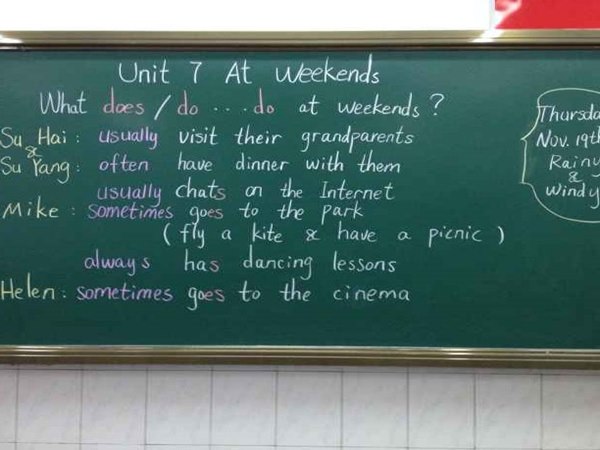 Unit 7 At Weekends
What does / do ... do at weekends ?
Su Hai : usually visit their grandparents
&
Su Yang : often have dinner with them
usually chats on the Internet
Mike : sometimes goes to the park
( fly a kite & have a picnic )
always has dancing lessons
Helen : sometimes goes to the cinema
Nov. 19th
&
Windy